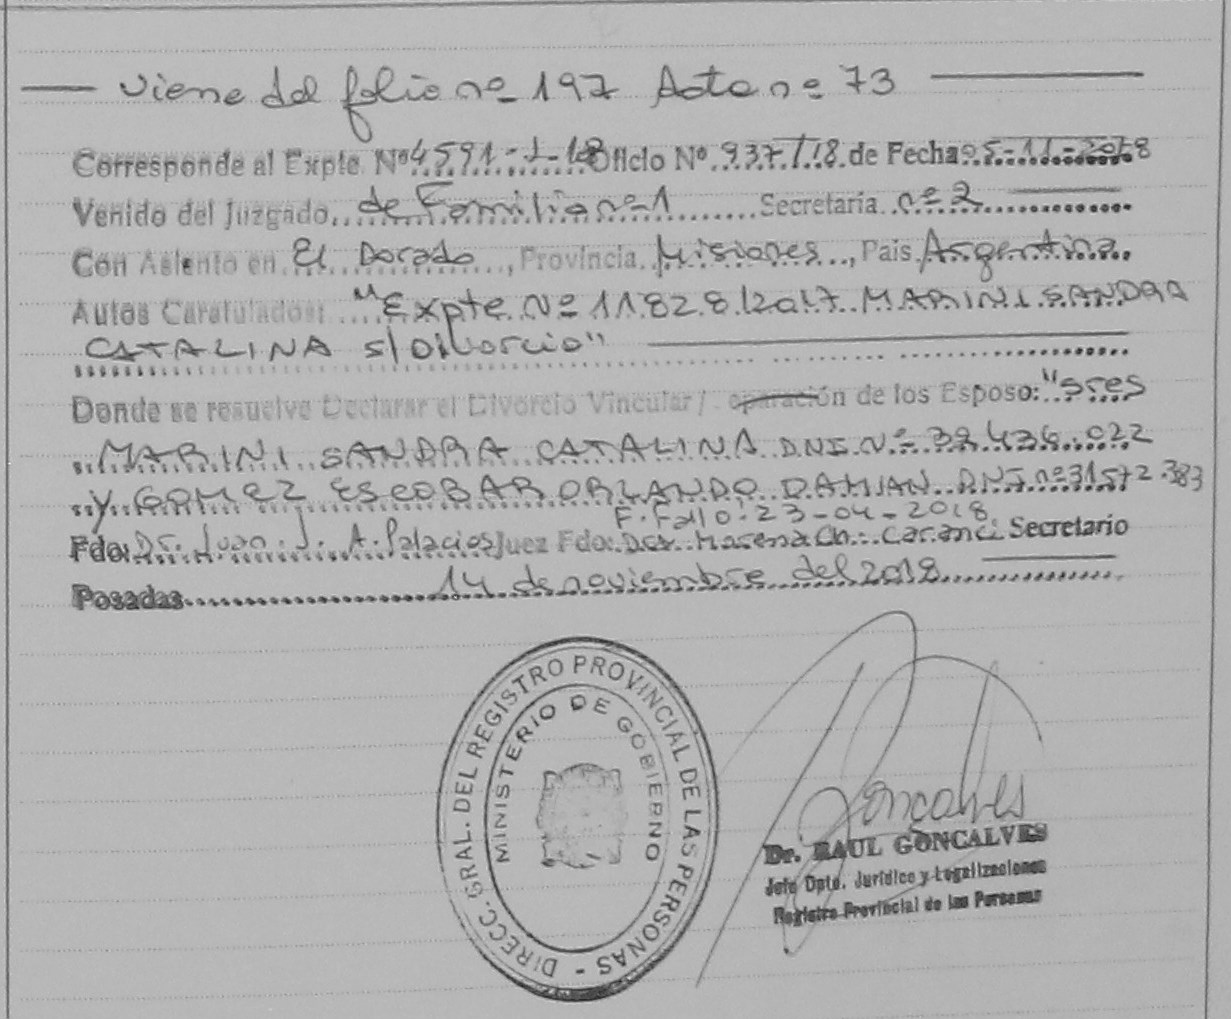 viene del folio nº 197 Acta nº 73
Corresponde al Expte. Nº 4591-J-18 Oficio Nº 937/18 de Fecha 05-11-2018
Venido del Juzgado de Familia nº 1 Secretaria nº 2
Con Asiento en El Dorado, Provincia Misiones, País Argentina
Autos Caratulados: "Expte. Nº 11828/2017 MARINI SANDRA
CATALINA s/Divorcio"
Donde se resuelve Declarar el Divorcio Vincular/ eparación de los Esposo: "sres
MARINI SANDRA CATALINA DNI. Nº 022
y GOMEZ ESCOBAR ORLANDO DAMIAN DNI nº 31572.383
F. Fallo: 23-04-2018
Fdo: Dr. Juan J. A. Palacios Juez Fdo: Dra. Morena Ch. Secretario
Posadas 14 de noviembre del 2018
DIRECC. GRAL. DEL REGISTRO PROVINCIAL DE LAS PERSONAS -
MINISTERIO DE GOBIERNO
Goncalves
Dr. RAUL GONCALVES
Jefe Dpto. Jurídico y Legalizaciones
Registro Provincial de las Personas